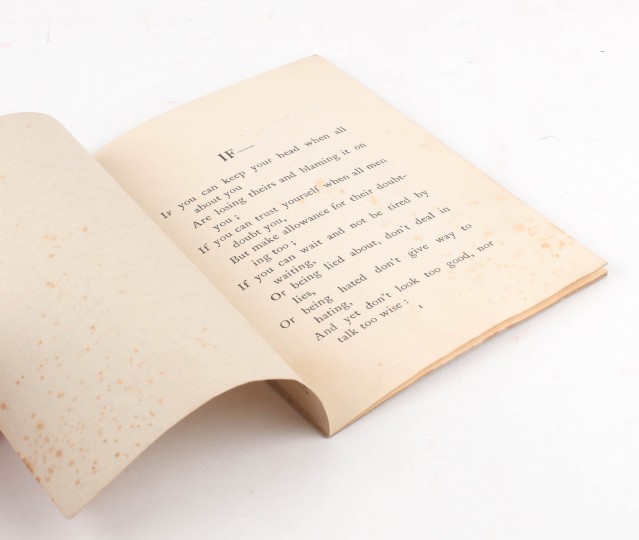 IF—
IF you can keep your head when all
about you
Are losing theirs and blaming it on
you ;
If you can trust yourself when all men
doubt you,
But make allowance for their doubt-
ing too ;
If you can wait and not be tired by
waiting,
Or being lied about, don't deal in
lies,
Or being hated don't give way to
hating,
And yet don't look too good, nor
talk too wise :